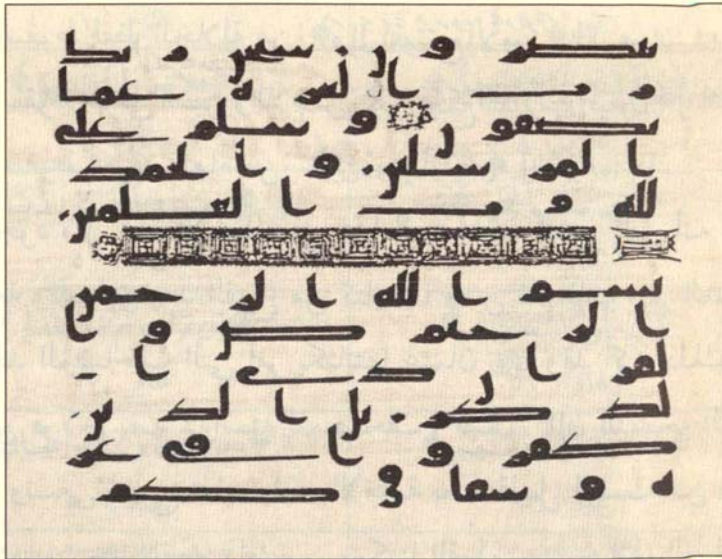 يبصرون سبحن ربك
رب العزة عما
يصفون وسلم على
المرسلين والحمد
لله رب العلمين
بسم الله الرحمن
الرحيم ص وا
لقران ذى ا
لذكر بل الذين
كفروا فى عز
ة وشقاق كم